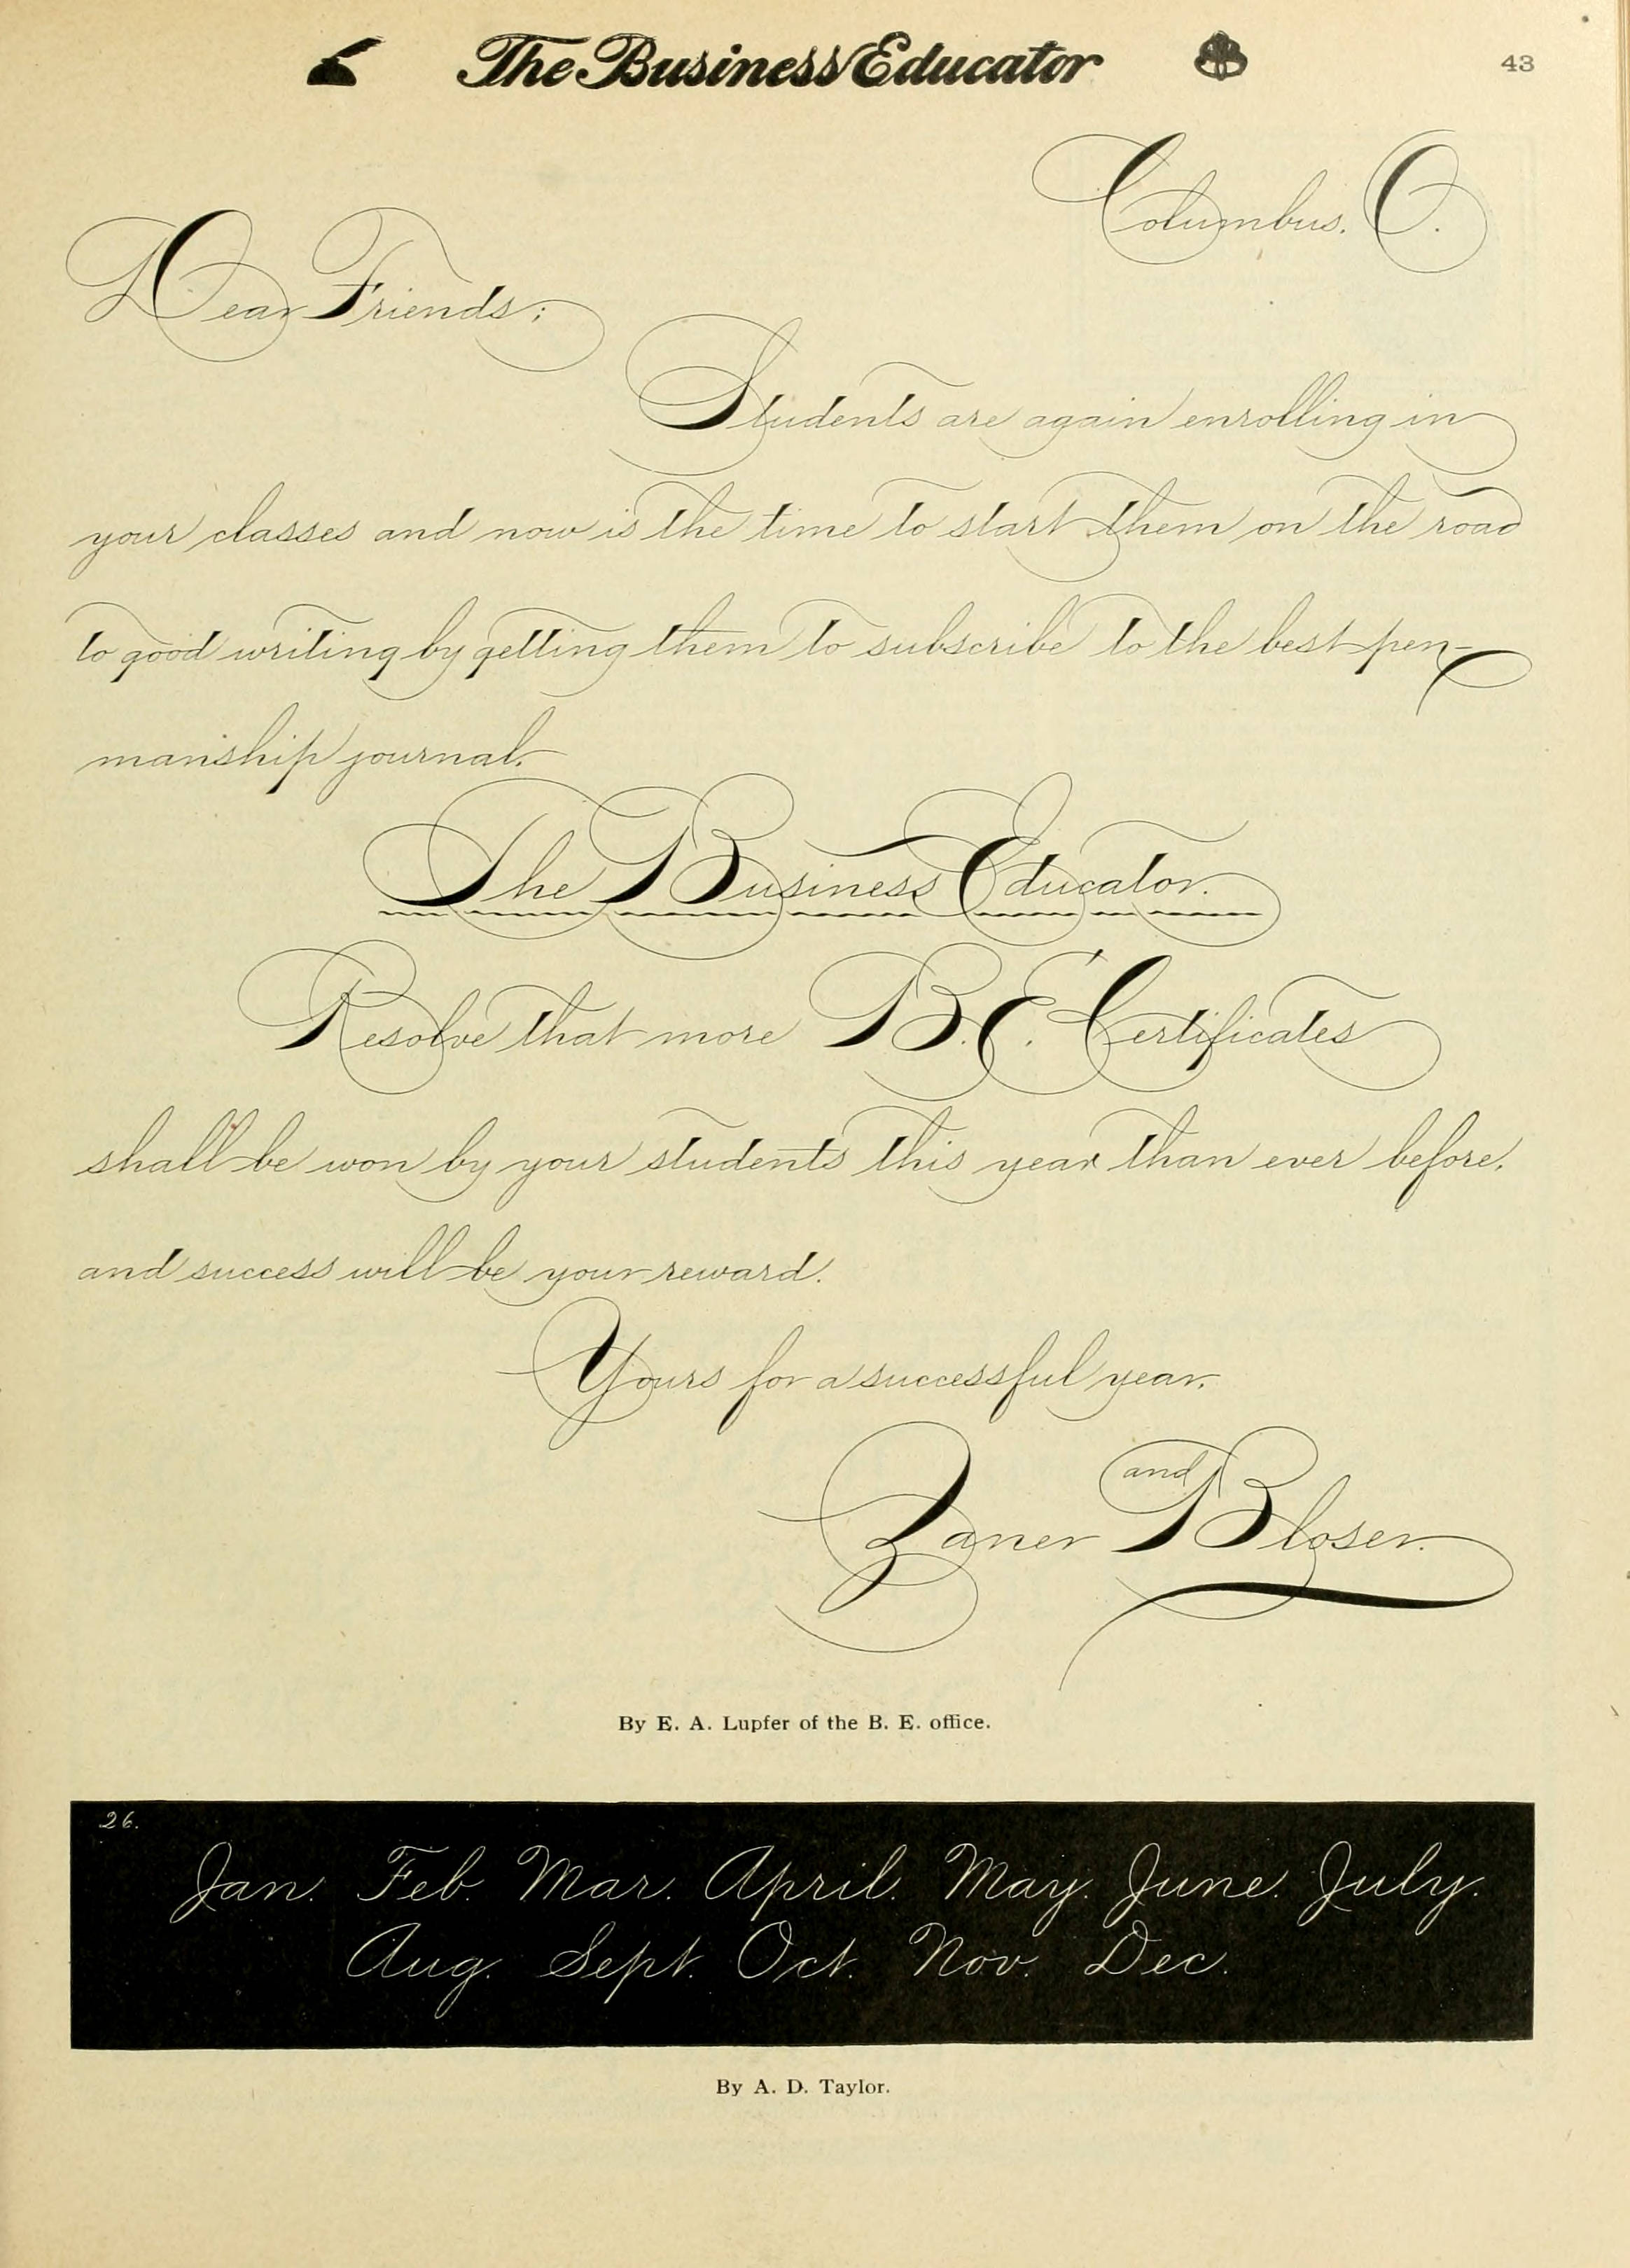 The Business Educator
43
Columbus, O.
Dear Friends;
Students are again enrolling in
your classes and now is the time to start them on the road
to good writing by getting them to subscribe to the best pen-
manship journal.
The Business Educator.
Resolve that more B. E. Certificates
shall be won by your students this year than ever before,
and success will be your reward.
Yours for a successful year,
Zaner and Bloser.
By E. A. Lupfer of the B. E. office.
26.
Jan. Feb. Mar. April. May. June. July.
Aug. Sept. Oct. Nov. Dec.
By A. D. Taylor.